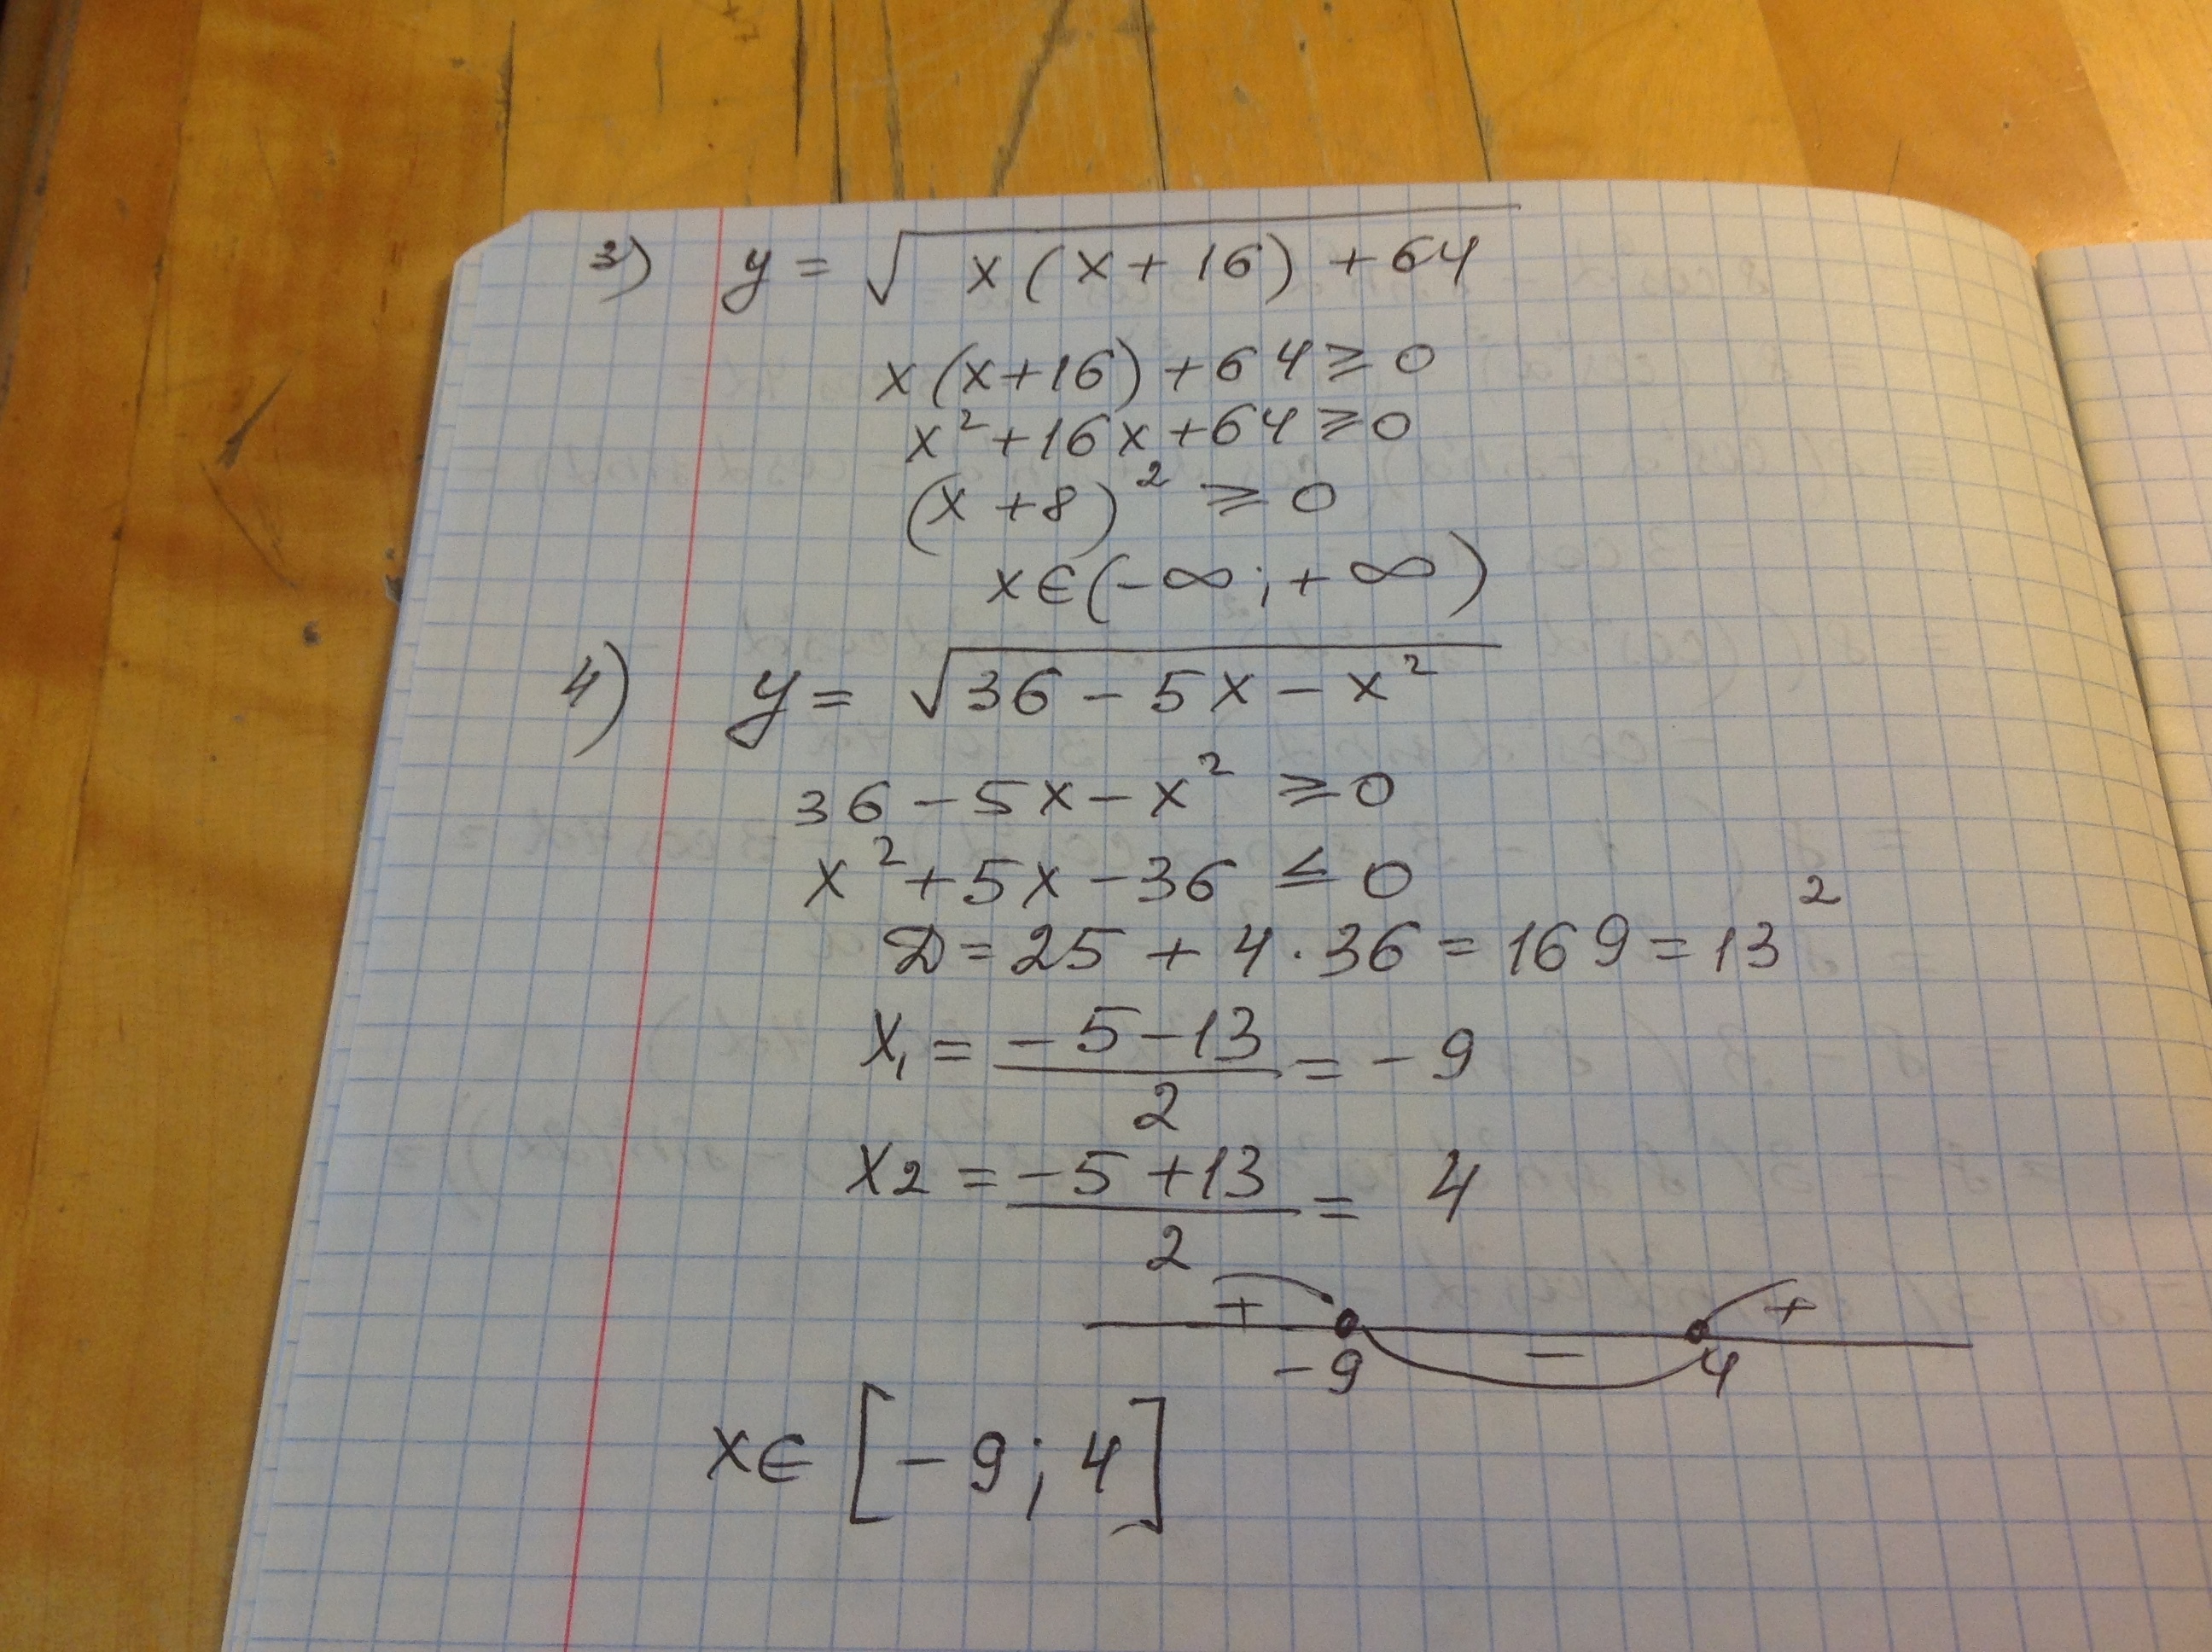 3) y = √x(x+16)+64
x(x+16)+64≥0
x²+16x+64≥0
(x+8)²≥0
x∈(-∞;+∞)
4) y = √36-5x-x²
36-5x-x²≥0
x²+5x-36≤0
D=25+4·36=169=13²
x₁=(-5-13)/2=-9
x2=(-5+13)/2=4
+ - +
-9 4
x∈[-9;4]